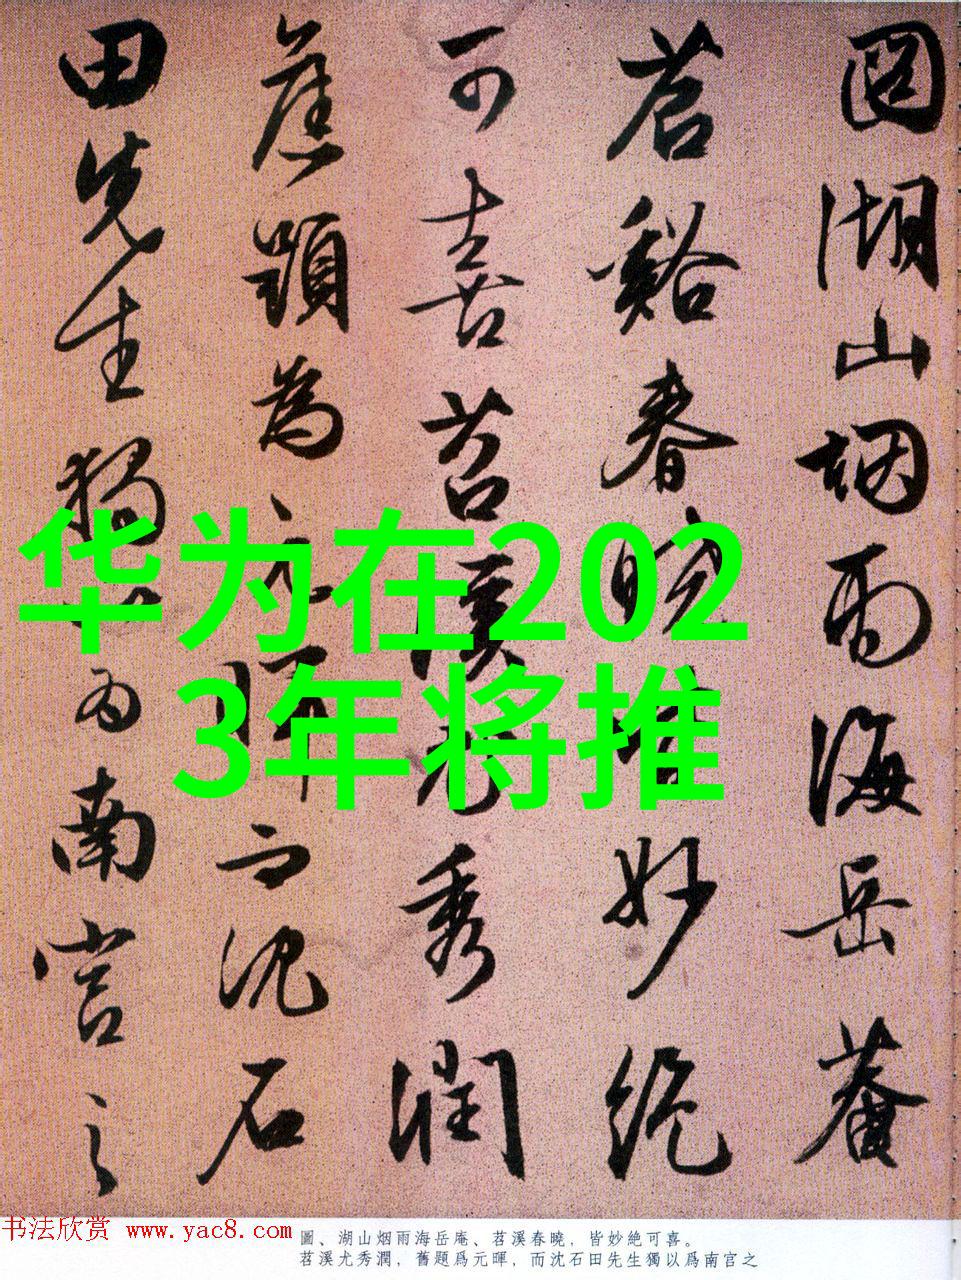 圖湖山烟雨海岳菴
苕谿春曉皆妙絶
可喜苕溪尤秀潤
舊題為元暉而沈石
田先生獨以為南宫之
华为在202
3年将推
书法欣赏 www.yac8.com
圖、湖山烟雨海岳庵、苕溪春曉，皆妙絶可喜。
苕溪尤秀潤，舊題爲元暉，而沈石田先生獨以爲南宫之